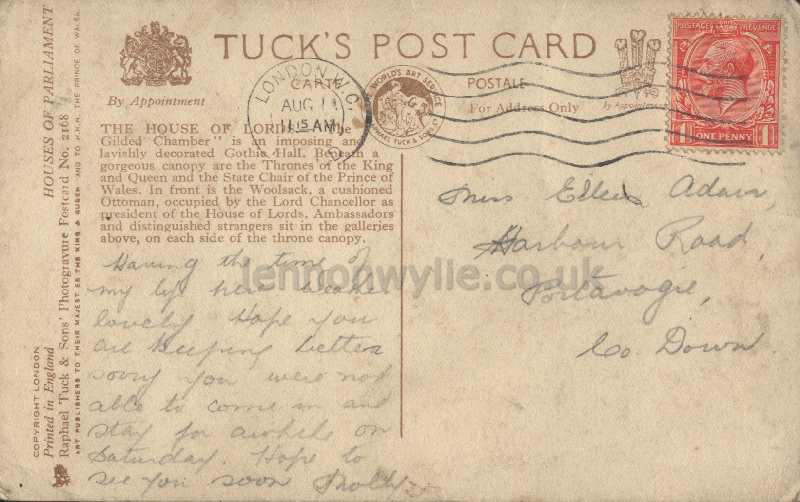 TUCK'S POST CARD
CARTE POSTALE
By Appointment
For Address Only
by Appointment
LONDON. W.C.
AUG 11
11.15 AM
WORLD'S ART SERVICE
RAPHAEL TUCK & SONS LD
POSTAGE REVENUE
1D ONE PENNY 1D
THE HOUSE OF LORDS. "The
Gilded Chamber" is an imposing and
lavishly decorated Gothic Hall. Beneath a
gorgeous canopy are the Thrones of the King
and Queen and the State Chair of the Prince of
Wales. In front is the Woolsack, a cushioned
Ottoman, occupied by the Lord Chancellor as
president of the House of Lords. Ambassadors
and distinguished strangers sit in the galleries
above, on each side of the throne canopy.
Having the time of
my life here weather
lovely Hope you
are keeping better
sorry you were not
able to come in and
stay for awhile on
Saturday. Hope to
see you soon Molly
Miss Ellen Adair,
Harbour Road,
Portavogie,
Co. Down.
lennonwylie.co.uk
HOUSES OF PARLIAMENT
COPYRIGHT LONDON
Printed in England
Raphael Tuck & Sons' Photogravure Postcard No. 2168
ART PUBLISHERS TO THEIR MAJESTIES THE KING & QUEEN AND TO H.R.H. THE PRINCE OF WALES.